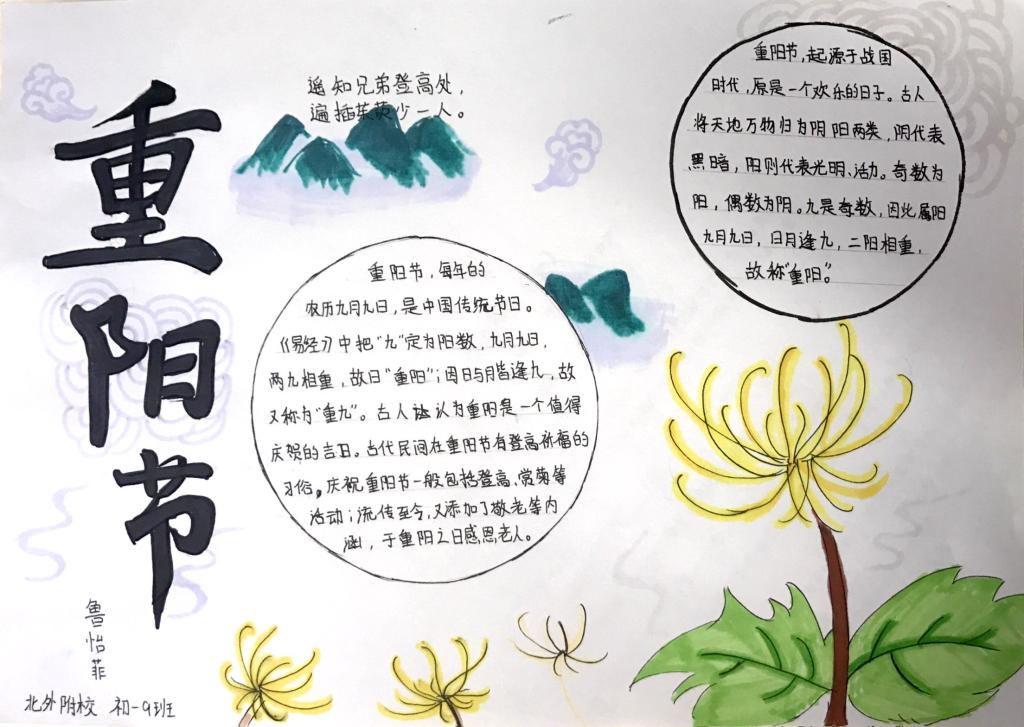 重阳节
遥知兄弟登高处，
遍插茱萸少一人。
重阳节，每年的
农历九月九日，是中国传统节日。
《易经》中把“九”定为阳数，九月九日，
两九相重，故曰“重阳”；因日与月皆逢九，故
又称为“重九”。古人认为重阳是一个值得
庆贺的吉日。古代民间在重阳节有登高祈福的
习俗。庆祝重阳节一般包括登高、赏菊等
活动；流传至今，又添加了敬老等内
涵，于重阳之日感恩老人。
重阳节，起源于战国
时代，原是一个欢乐的日子。古人
将天地万物归为阴阳两类，阴代表
黑暗，阳则代表光明、活力。奇数为
阳，偶数为阴。九是奇数，因此属阳
九月九日，日月逢九，二阳相重，
故称“重阳”。
鲁怡菲
北外附校 初一9班